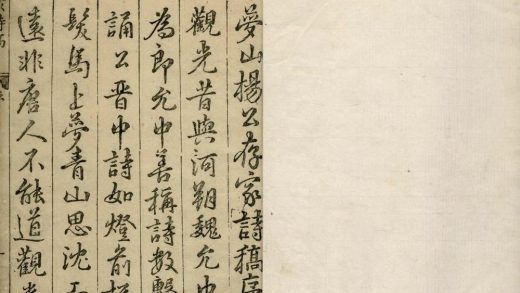 夢山楊公存家詩稿序
觀光昔與河朔魏允中
為郎允中善稱詩數
誦公晉中詩如燈前
髮馬上夢青山思沈
遠非唐人不能道觀